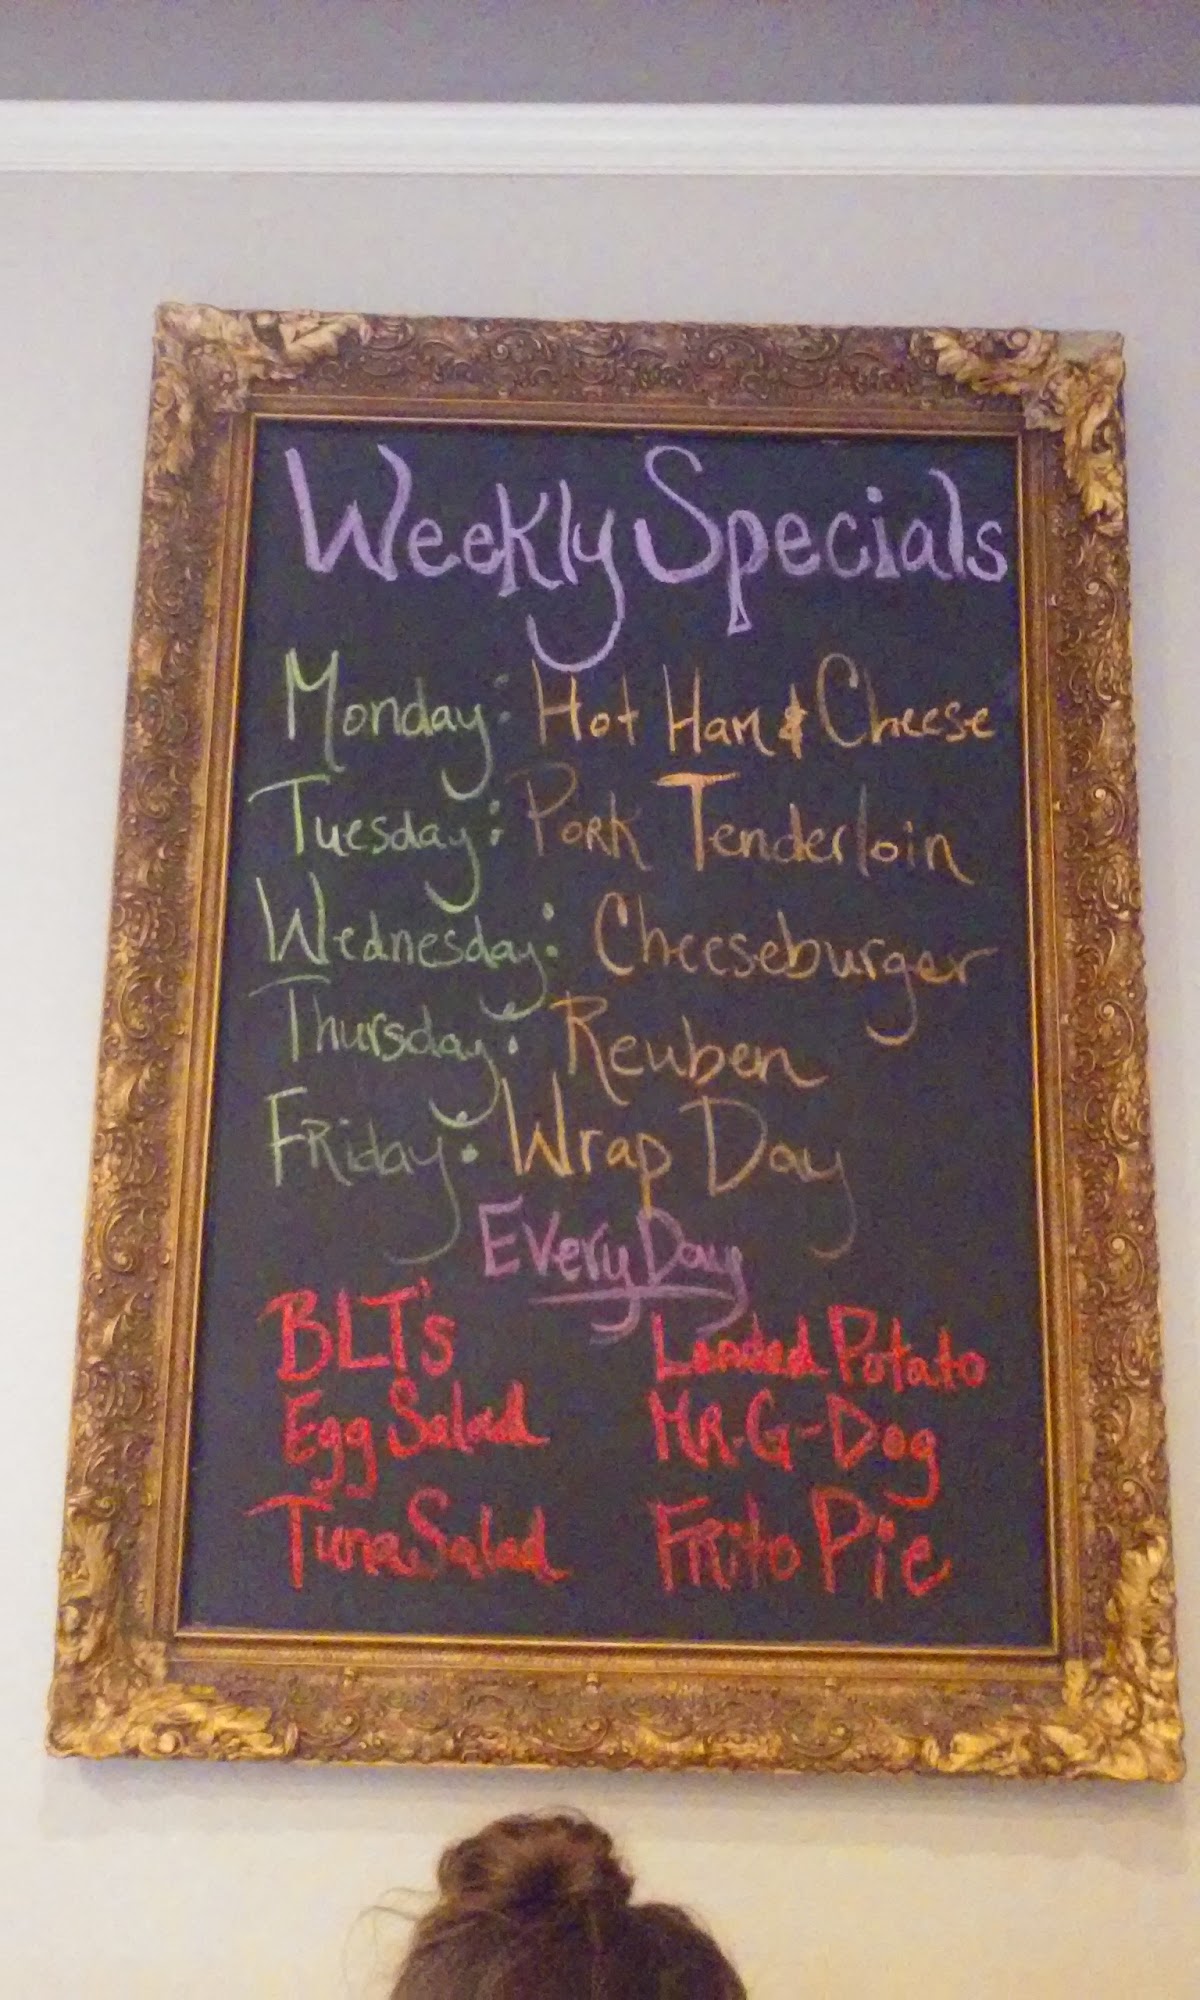 Weekly Specials
Monday: Hot Ham & Cheese
Tuesday: Pork Tenderloin
Wednesday: Cheeseburger
Thursday: Reuben
Friday: Wrap Day
Every Day
BLT's Loaded Potato
Egg Salad Mr. G-Dog
Tuna Salad Frito Pie